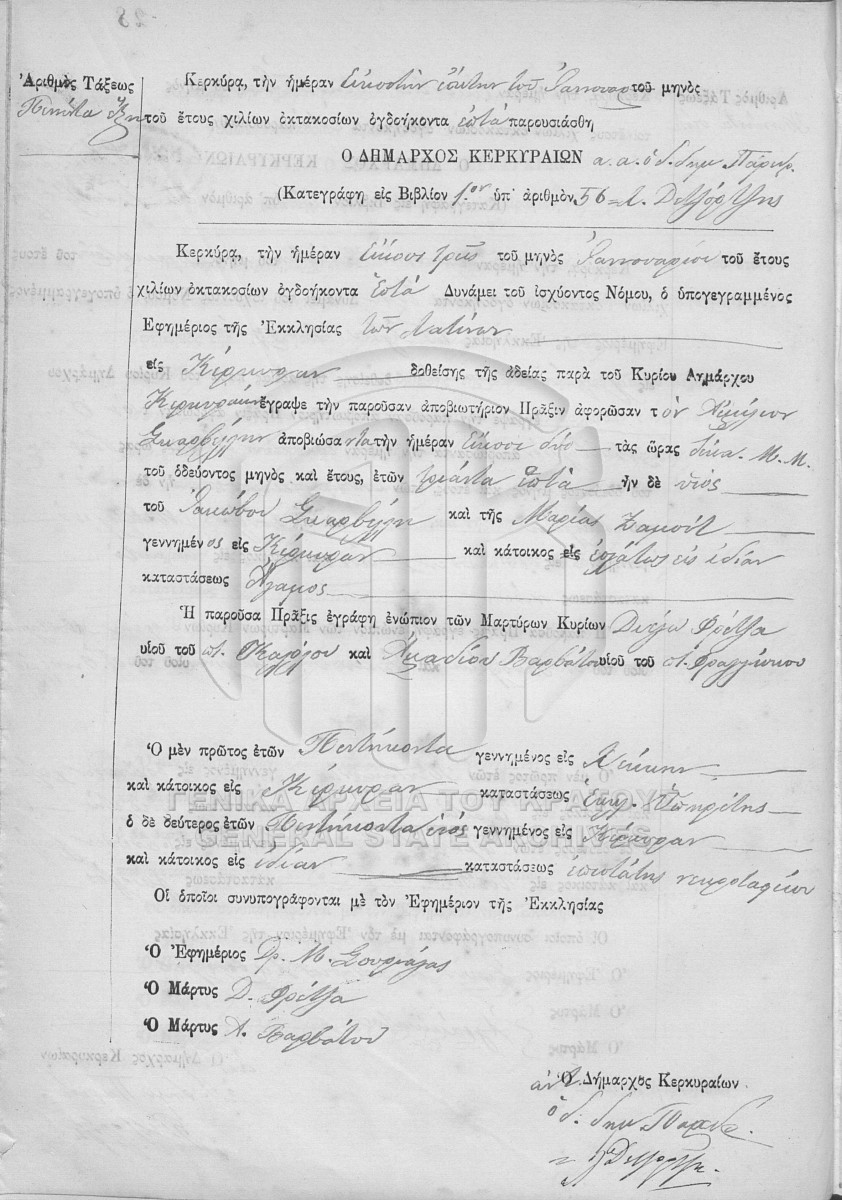 Ἀριθμὸς Τάξεως
Πενῆντα ἕξη
Κερκύρα, τὴν ἡμέραν Εἰκοστὴν ἕκτην τοῦ Ἰανουαρ τοῦ μηνὸς
τοῦ ἔτους χιλίων ὀκτακοσίων ὀγδοήκοντα ἑπτὰ παρουσιάσθη
Ὁ ΔΗΜΑΡΧΟΣ ΚΕΡΚΥΡΑΙΩΝ α. α. ὁ δ. δημ. Πάρεδρ.
(Κατεγράφη εἰς Βιβλίον 1ον ὑπ' ἀριθμὸν 56
Κερκύρα, τὴν ἡμέραν Εἴκοσι τρεῖς τοῦ μηνὸς Ἰαννουαρίου τοῦ ἔτους
χιλίων ὀκτακοσίων ὀγδοήκοντα ἑπτὰ Δυνάμει τοῦ ἰσχύοντος Νόμου, ὁ ὑπογεγραμμένος
Ἐφημέριος τῆς Ἐκκλησίας τῶν Λατίνων
εἰς Κέρκυραν δοθείσης τῆς ἀδείας παρὰ τοῦ Κυρίου Δημάρχου
Κερκυραίων ἔγραψε τὴν παροῦσαν ἀποβιωτήριον Πρᾶξιν ἀφορῶσαν τὸν
Σκαρβέλην ἀποβιώσαντα τὴν ἡμέραν εἴκοσι δύο τὰς ὥρας δέκα Μ. Μ.
τοῦ ὁδεύοντος μηνὸς καὶ ἔτους, ἐτῶν τριάντα ἑπτὰ ἦν δὲ υἱὸς
τοῦ Ἰακώβου Σκαρβέλη καὶ τῆς Μαρίας Ζαμὸντ
γεννημένος εἰς Κέρκυραν καὶ κάτοικος εἰς ἐργάτης εἰς ἰδίαν
καταστάσεως Ἄγαμος
Ἡ παροῦσα Πρᾶξις ἐγράφη ἐνώπιον τῶν Μαρτύρων Κυρίων Διέγω Φρέτζα
υἱοῦ τοῦ π. Καρόλου καὶ Ἀρκαδίου Βαρβάτου υἱοῦ τοῦ π. Φραγγίσκου
Ὁ μὲν πρῶτος ἐτῶν Πεντήκοντα γεννημένος εἰς
καὶ κάτοικος εἰς Κέρκυραν καταστάσεως Ὑπηρέτης
ὁ δὲ δεύτερος ἐτῶν Πεντήκοντα ἑνὸς γεννημένος εἰς Κέρκυραν
καὶ κάτοικος εἰς ἰδίαν καταστάσεως ἐπιστάτης νεκροταφείου
Οἱ ὁποῖοι συνυπογράφονται μὲ τὸν Ἐφημέριον τῆς Ἐκκλησίας
Ὁ Ἐφημέριος Δρ. Μ.
Ὁ Μάρτυς Δ. Φρέτζα
Ὁ Μάρτυς Α. Βαρβάτου
Ὁ Δήμαρχος Κερκυραίων
ὁ δ. δημ. Πάρεδ.
ΓΕΝΙΚΑ ΑΡΧΕΙΑ ΤΟΥ ΚΡΑΤΟΥΣ
GENERAL STATE ARCHIVES